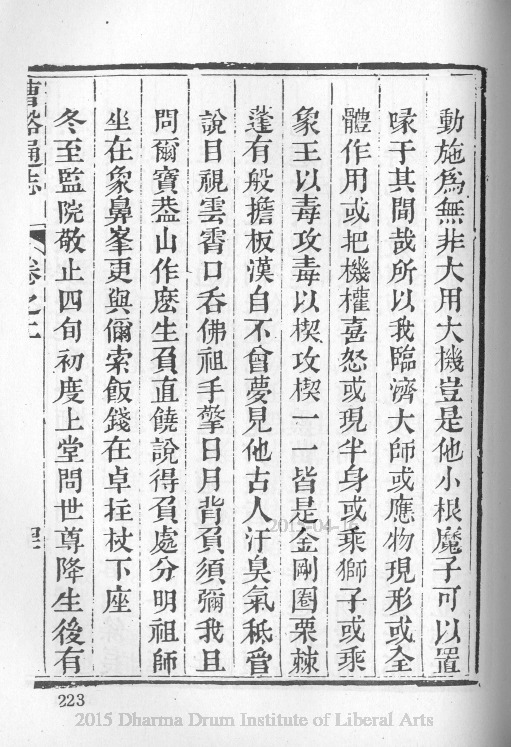 動施爲無非大用大機豈是他小根魔子可以置
喙于其間哉所以我臨濟大師或應物現形或全
體作用或把機權喜怒或現半身或乘獅子或乘
象王以毒攻毒以楔攻楔一一皆是金剛圈栗棘
蓬有般擔板漢自不曾夢見他古人汗臭氣秪管
說目視雲霄口呑佛祖手擎日月背負須彌我且
問爾寶葢山作麽生負直饒說得負處分明祖師
坐在象鼻峯更與儞索飯錢在卓拄杖下座
冬至監院敬止四旬初度上堂問世尊降生後有
曹谿通志
卷之二
223
2015 Dharma Drum Institute of Liberal Arts